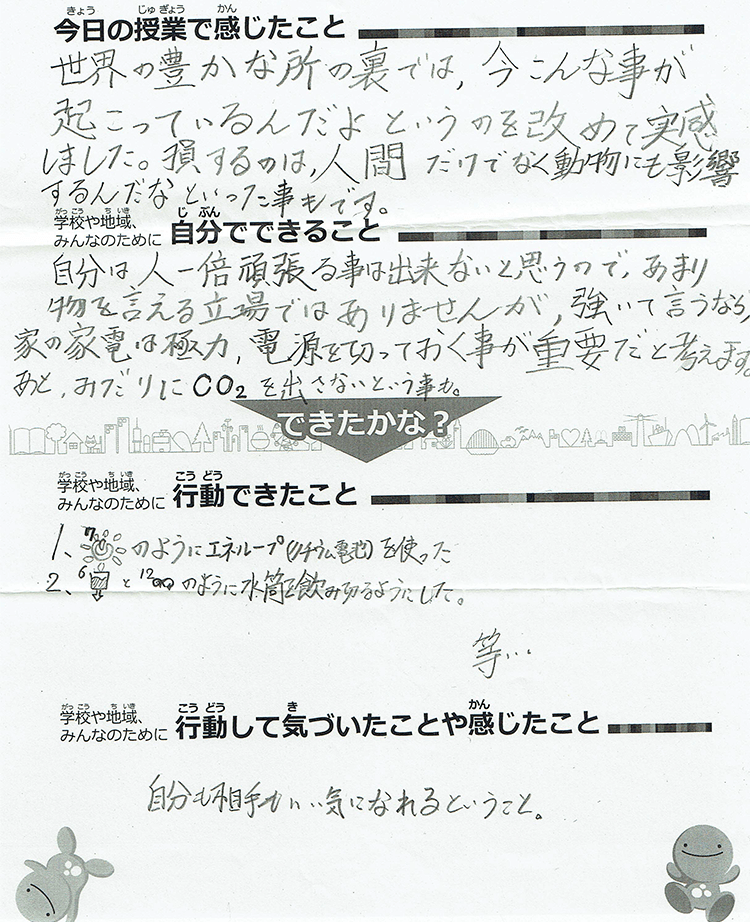 今日の授業で感じたこと
世界の豊かな所の裏では、今こんな事が
起こっているんだよというのを改めて実感
しました。損するのは、人間だけでなく動物にも影響
するんだなといった事もです。
学校や地域、
みんなのために 自分でできること
自分は人一倍頑張る事は出来ないと思うので、あまり
物を言える立場ではありませんが、強いて言うなら、
家の家電は極力、電源を切っておく事が重要だと考えます。
あと、みだりにCO2を出さないという事も。
できたかな?
学校や地域、
みんなのために 行動できたこと
1、7 のようにエネループ(リチウム電池)を使った
2、6 と12 のように水筒を飲み切るようにした。
等...
学校や地域、
みんなのために 行動して気づいたことや感じたこと
自分も相手もいい気になれるということ。